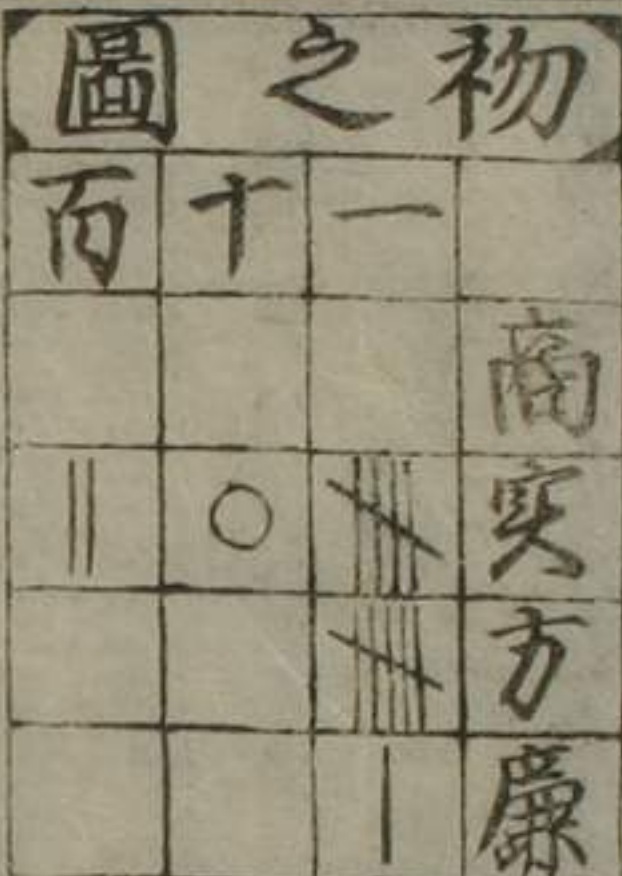 初之圖
一 十 百
商
実 \|||| ○ ||
方 \|||||
廉 |